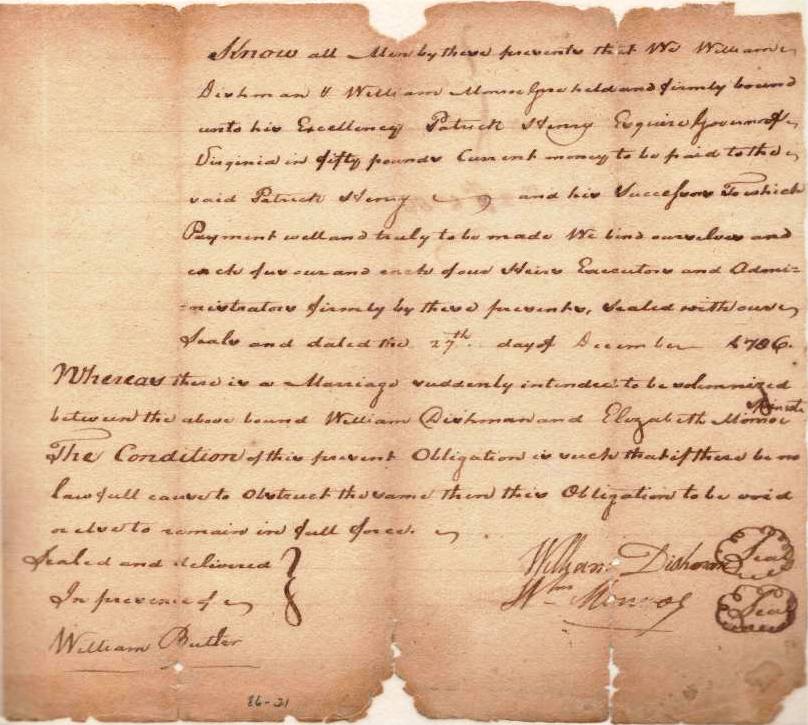 Know all Men by these presents that We William
Dishman & William Monroe are held and firmly bound
unto his Excellency Patrick Henry Esquire Governor of
Virginia in fifty pounds Current money to be paid to the
said Patrick Henry and his Successors To which
Payment well and truly to be made We bind ourselves and
each of us our and each of our Heirs Executors and Admi=
=nistrators firmly by these presents, Sealed with our
Seals and dated the 27th day of December 1786.
Whereas there is a Marriage suddenly intended to be solemnized
between the above bound William Dishman and Elizabeth Monroe
The Condition of this present Obligation is such that if there be no
lawfull cause to Obstruct the same then this Obligation to be void
or else to remain in full force.
Sealed and delivered
In presence of
William Butler
William Dishman Seal
Wm Monroe Seal
86-31